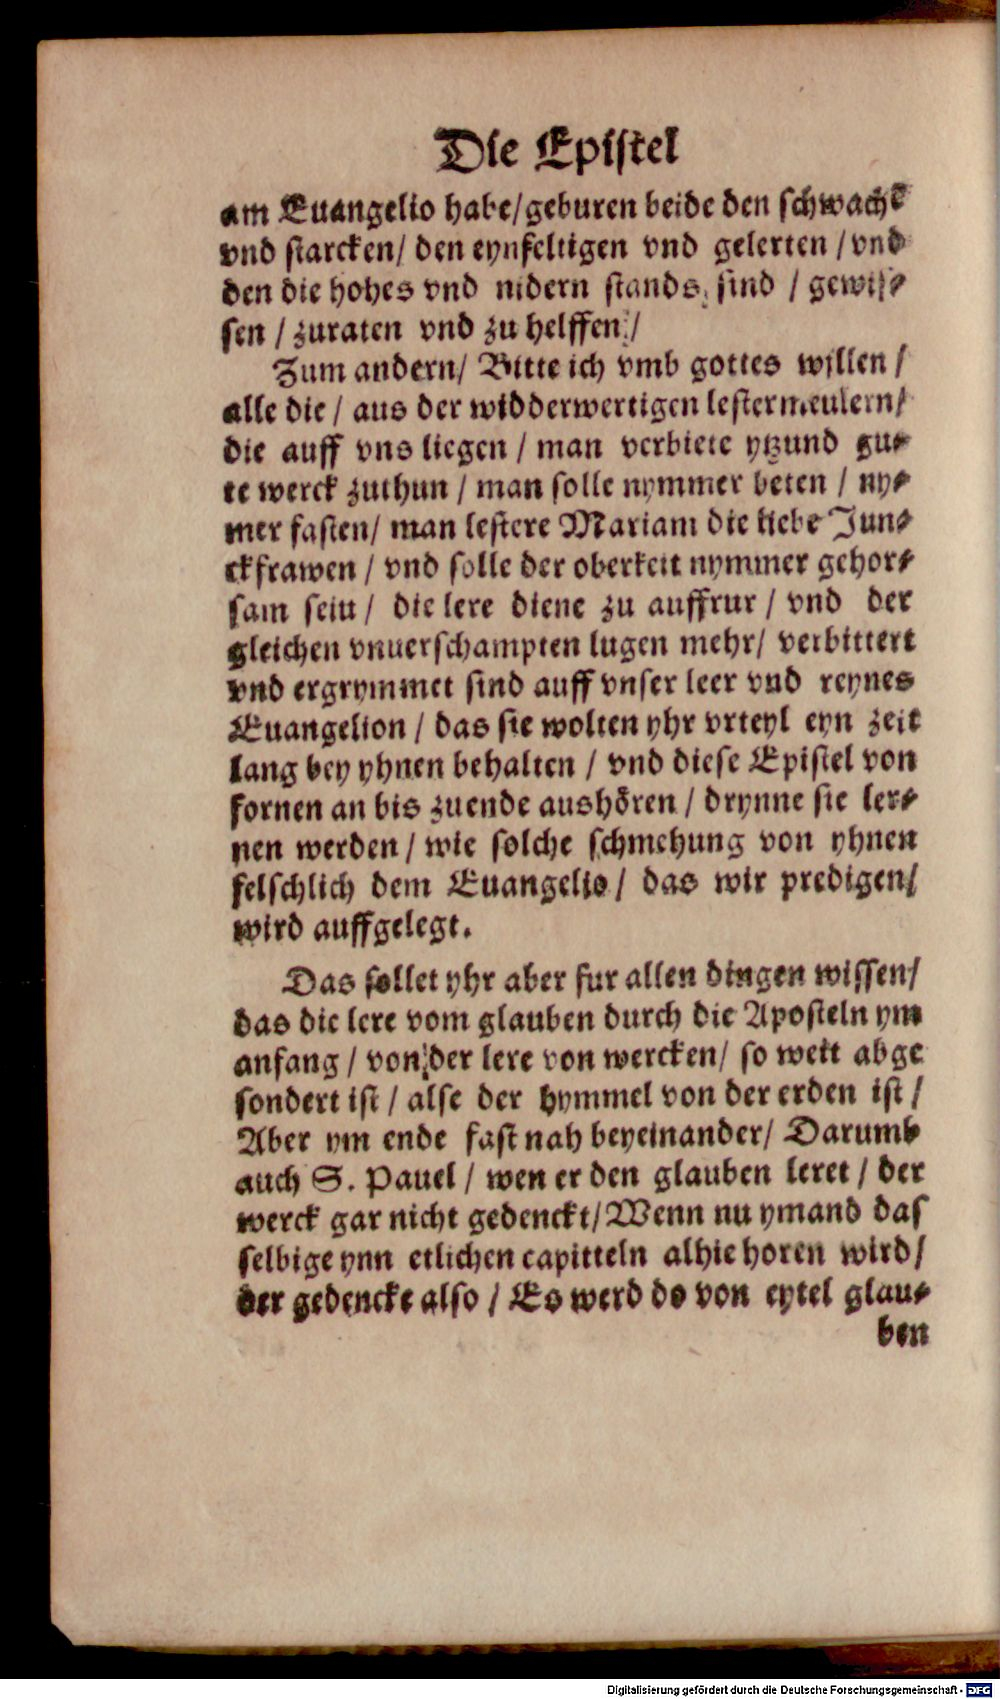 Die Epistel
am Euangelio habe/geburen beide den schwachẽ
vnd starcken/ den eynfeltigen vnd gelerten / vnd
den die hohes vnd nidern stands, sind / gewis⸗
sen / zuraten vnd zu helffen /
Zum andern/ Bitte ich vmb gottes willen /
alle die / aus der widderwertigen lestermeulern/
die auff vns liegen / man verbiete ytzund gu⸗
te werck zuthun / man solle nymmer beten / ny⸗
mer fasten/ man lestere Mariam die liebe Jun⸗
ckfrawen / vnd solle der oberkeit nymmer gehor⸗
sam sein / die lere diene zu auffrur / vnd der
gleichen vnuerschampten lugen mehr/ verbittert
vnd ergrymmet sind auff vnser leer vnd reynes
Euangelion / das sie wolten yhr vrteyl eyn zeit
lang bey yhnen behalten / vnd diese Epistel von
fornen an bis zuende aushören / drynne sie ler⸗
nen werden / wie solche schmehung von yhnen
felschlich dem Euangelio / das wir predigen/
wird auffgelegt.
Das sollet yhr aber fur allen dingen wissen/
das die lere vom glauben durch die Aposteln ym
anfang / von der lere von wercken/ so weit abge
sondert ist / alse der hymmel von der erden ist /
Aber ym ende fast nah beyeinander/ Darumb
auch S. Pauel / wen er den glauben leret / der
werck gar nicht gedenckt/ Wenn nu ymand das
selbige ynn etlichen capitteln alhie horen wird/
der gedencke also / Es werd do von eytel glau⸗
ben
Digitalisierung gefördert durch die Deutsche Forschungsgemeinschaft - DFG